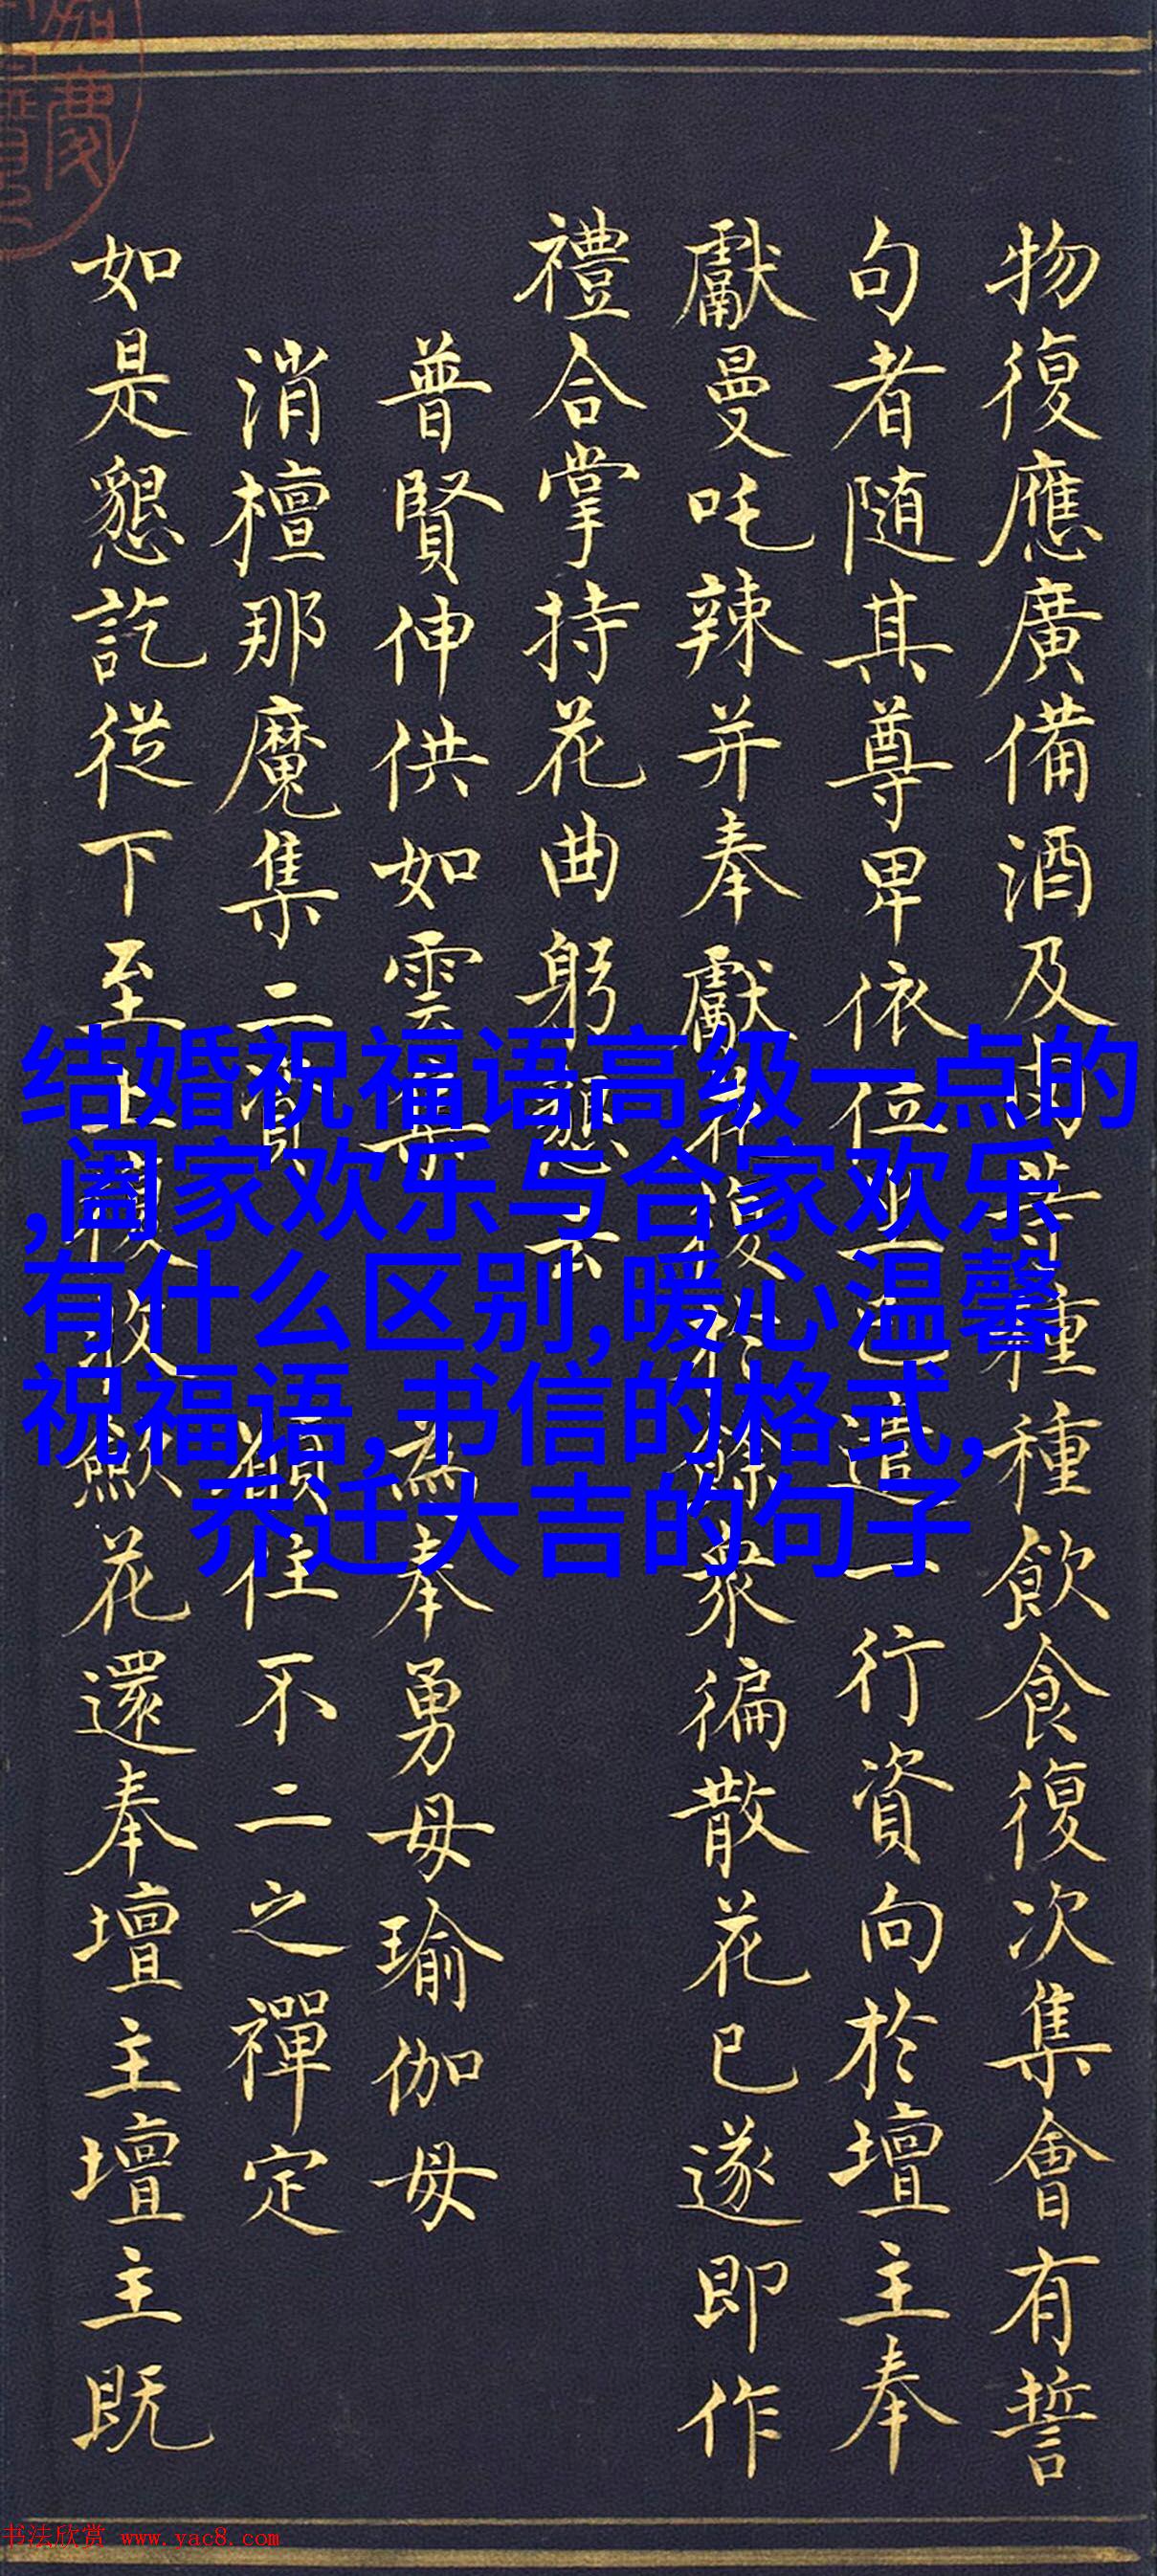 物復應廣備酒及
種種飲食復次集會有誓
句者随其尊卑依位
遣一行資向於壇主奉
獻曼吒辣并奉獻
餘衆徧散花已遂即作
禮合掌持花曲躬懇
普賢伸供如雲集
為奉勇母瑜伽母
消檀那魔集二
願住不二之禪定
如是懇訖從下至
花還奉壇主壇主既
结婚祝福语高级一点的
,阖家欢乐与合家欢乐
有什么区别,暖心温馨
祝福语,书信的格式,
乔迁大吉的句子
书法欣赏 www.yac8.com